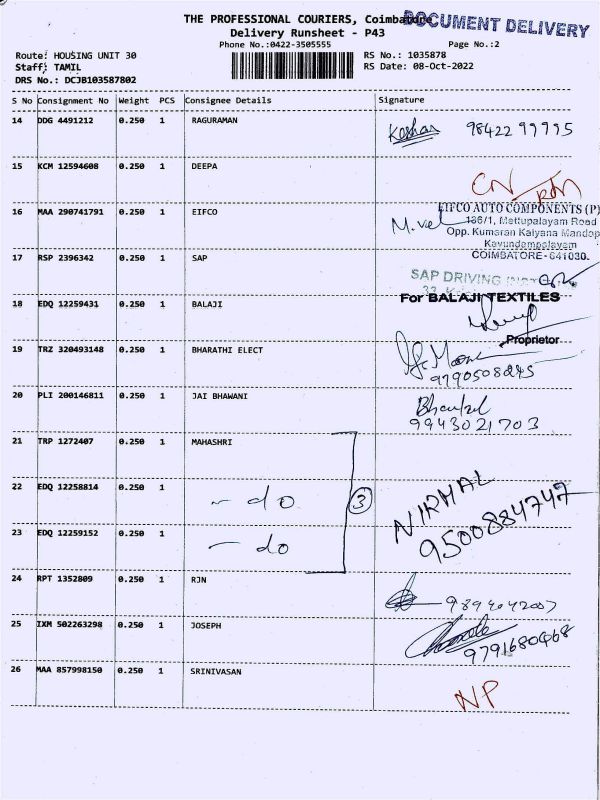 THE PROFESSIONAL COURIERS, Coimbatore
DOCUMENT DELIVERY
Delivery Runsheet - P43
Phone No.:0422-3505555
Page No.:2
Route: HOUSING UNIT 30
RS No.: 1035878
Staff: TAMIL
RS Date: 08-Oct-2022
DRS No.: DCJB103587802
S No Consignment No Weight PCS Consignee Details Signature
14 DDG 4491212 0.250 1 RAGURAMAN
98422 99995
15 KCM 12594608 0.250 1 DEEPA
CN
16 MAA 290741791 0.250 1 EIFCO
M. vel
EIFCO AUTO COMPONENTS (P)
136/1, Mettupalayam Road
Opp. Kumaran Kalyana Mandap
Kavundampalayam
COIMBATORE-641030.
17 RSP 2396342 0.250 1 SAP
SAP DRIVING
18 EDQ 12259431 0.250 1 BALAJI
For BALAJI TEXTILES
Proprietor
19 TRZ 320493148 0.250 1 BHARATHI ELECT
9790508245
20 PLI 200146811 0.250 1 JAI BHAWANI
9943021703
21 TRP 1272407 0.250 1 MAHASHRI
22 EDQ 12258814 0.250 1 - do
3
NIRMAL
9500884747
23 EDQ 12259152 0.250 1 - do
24 RPT 1352809 0.250 1 RJN
25 IXM 502263298 0.250 1 JOSEPH
9791680468
26 MAA 857998150 0.250 1 SRINIVASAN
NP